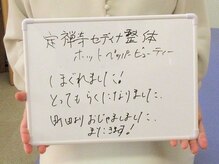 定禅寺セディナ整体
ホットペッパービューティー
しまぐれました!
とってもらくになりました。
町田よりおじゃましました。
また来ます!